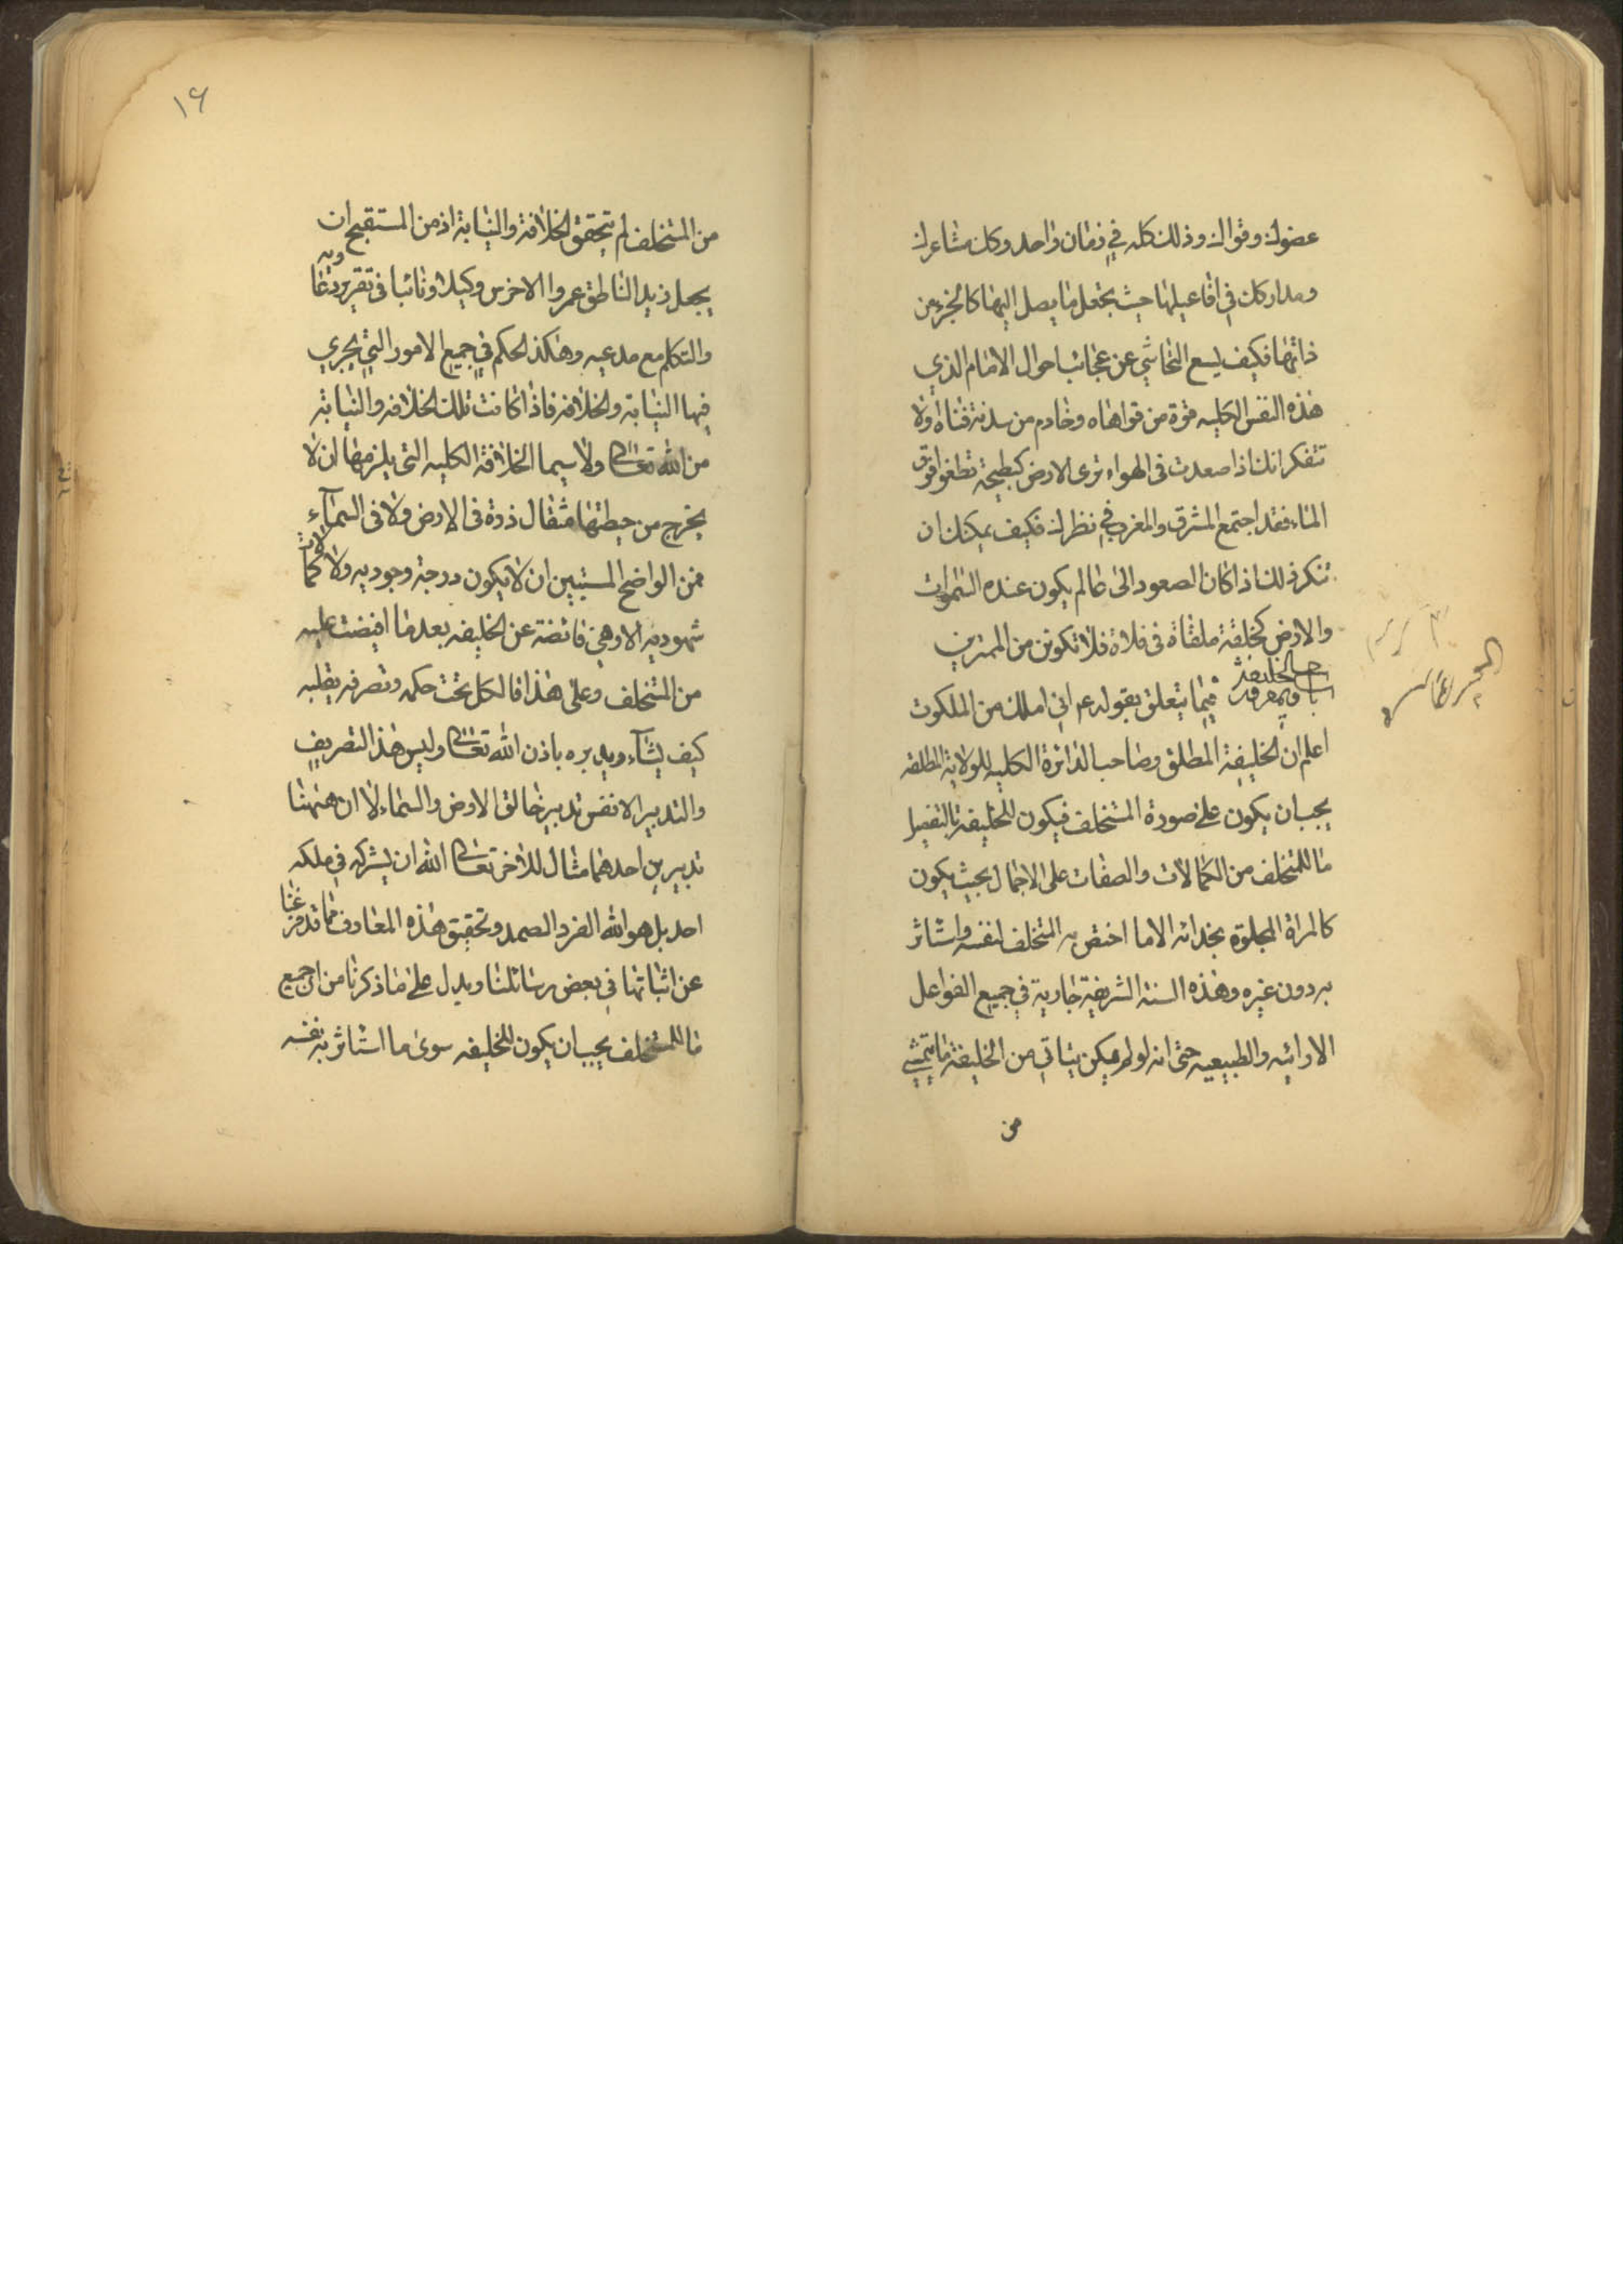 عضوك وقواك وذلك كله في زمان واحد وكل مشاعرك
ومداركك في افاعيلها حيث يجعل ما يصل اليها كالجزء من
ذاتها فكيف يسع التحاشي عن عجائب احوال الامام الذي
هذه النفس الكليه قوة من قواهاه وخادم من سدنة فناه اولا
تتفكر انك اذا صعدت في الهواء ترى الارض كبطيخة تطفو فوق
الماء فقد اجتمع المشرق والمغرب في نظرك فكيف يمكنك ان
تنكر ذلك اذا كان الصعود الى عالم يكون عنده السموات
والارض كحلقة ملقاة في فلاة فلا تكونن من الممترين
فيما يتعلق بقوله عم اني املك من الملكوت
اعلم ان الخليفة المطلق وصاحب الدائرة الكليه للولاية المطلقه
يجب ان يكون على صورة المستخلف فيكون للخليفة بالتفصيل
ما للمستخلف من الكمالات والصفات على الاجمال بحيث يكون
كالمراة المجلوة بحذائه الا ما اختص به المستخلف لنفسه واستاثر
به دون غيره وهذه السنة الشريفة جارية في جميع الفواعل
الارائيه والطبيعيه حتى انه لو لم يكن يتاتى من الخليفة ما يتمشى
من
١٦
من المستخلف لم يتحقق الخلافة والنيابة اذ من المستقبح ان
يجعل زيد الناطق عمروا الاخرس وكيلا ونائبا في تقرير دعاويه
والتكلم مع مدعيه وهكذا الحكم في جميع الامور التي يجري
فيها النيابة والخلافه فاذا كانت تلك الخلافه والنيابة
من الله تعالى ولا سيما الخلافة الكليه التي يلزمها ان لا
يخرج من حيطتها مثقال ذرة في الارض ولا في السمآء
فمن الواضح المستبين ان لا يكون درجة وجوديه ولا كمالات
شهوديه الا وهي فائضة عن الخليفه بعد ما افيضت عليه
من المستخلف وعلى هذا فالكل تحت حكمه وتصرفه يقلبه
كيف يشآء ويدبره باذن الله تعالى وليس هذا التصريف
والتدبير الا نفس تدبير خالق الارض والسماء لا ان ههنا
تدبيرين احدهما مثال للاخر تعالى الله ان يشركه في ملكه
احد بل هو الله الفرد الصمد وتحقيق هذه المعارف مما قد فرغنا
عن اثباتها في بعض رسائلنا ويدل على ما ذكرنا من ان جميع
ما للمستخلف يجب ان يكون للخليفه سوى ما استاثر به نفسه